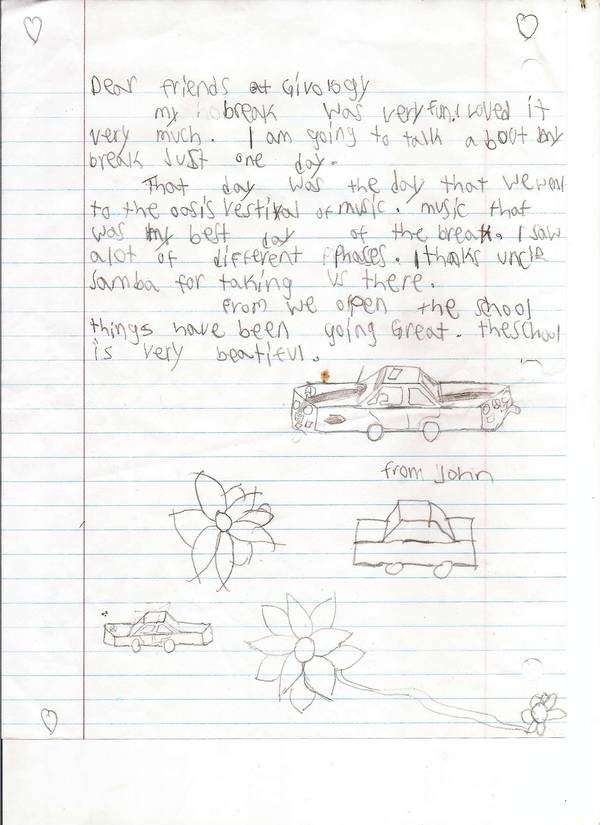 Dear friends at Givology
my break was very fun, I loved it
very much. I am going to talk about my
break Just one day.
That day was the day that we went
to the oasis vestival of music. music that
was my best day of the break. I saw
alot of different phases. I thanks uncle
samba for taking us there.
from we open the school
things have been going Great. the school
is very beatiful.
from John